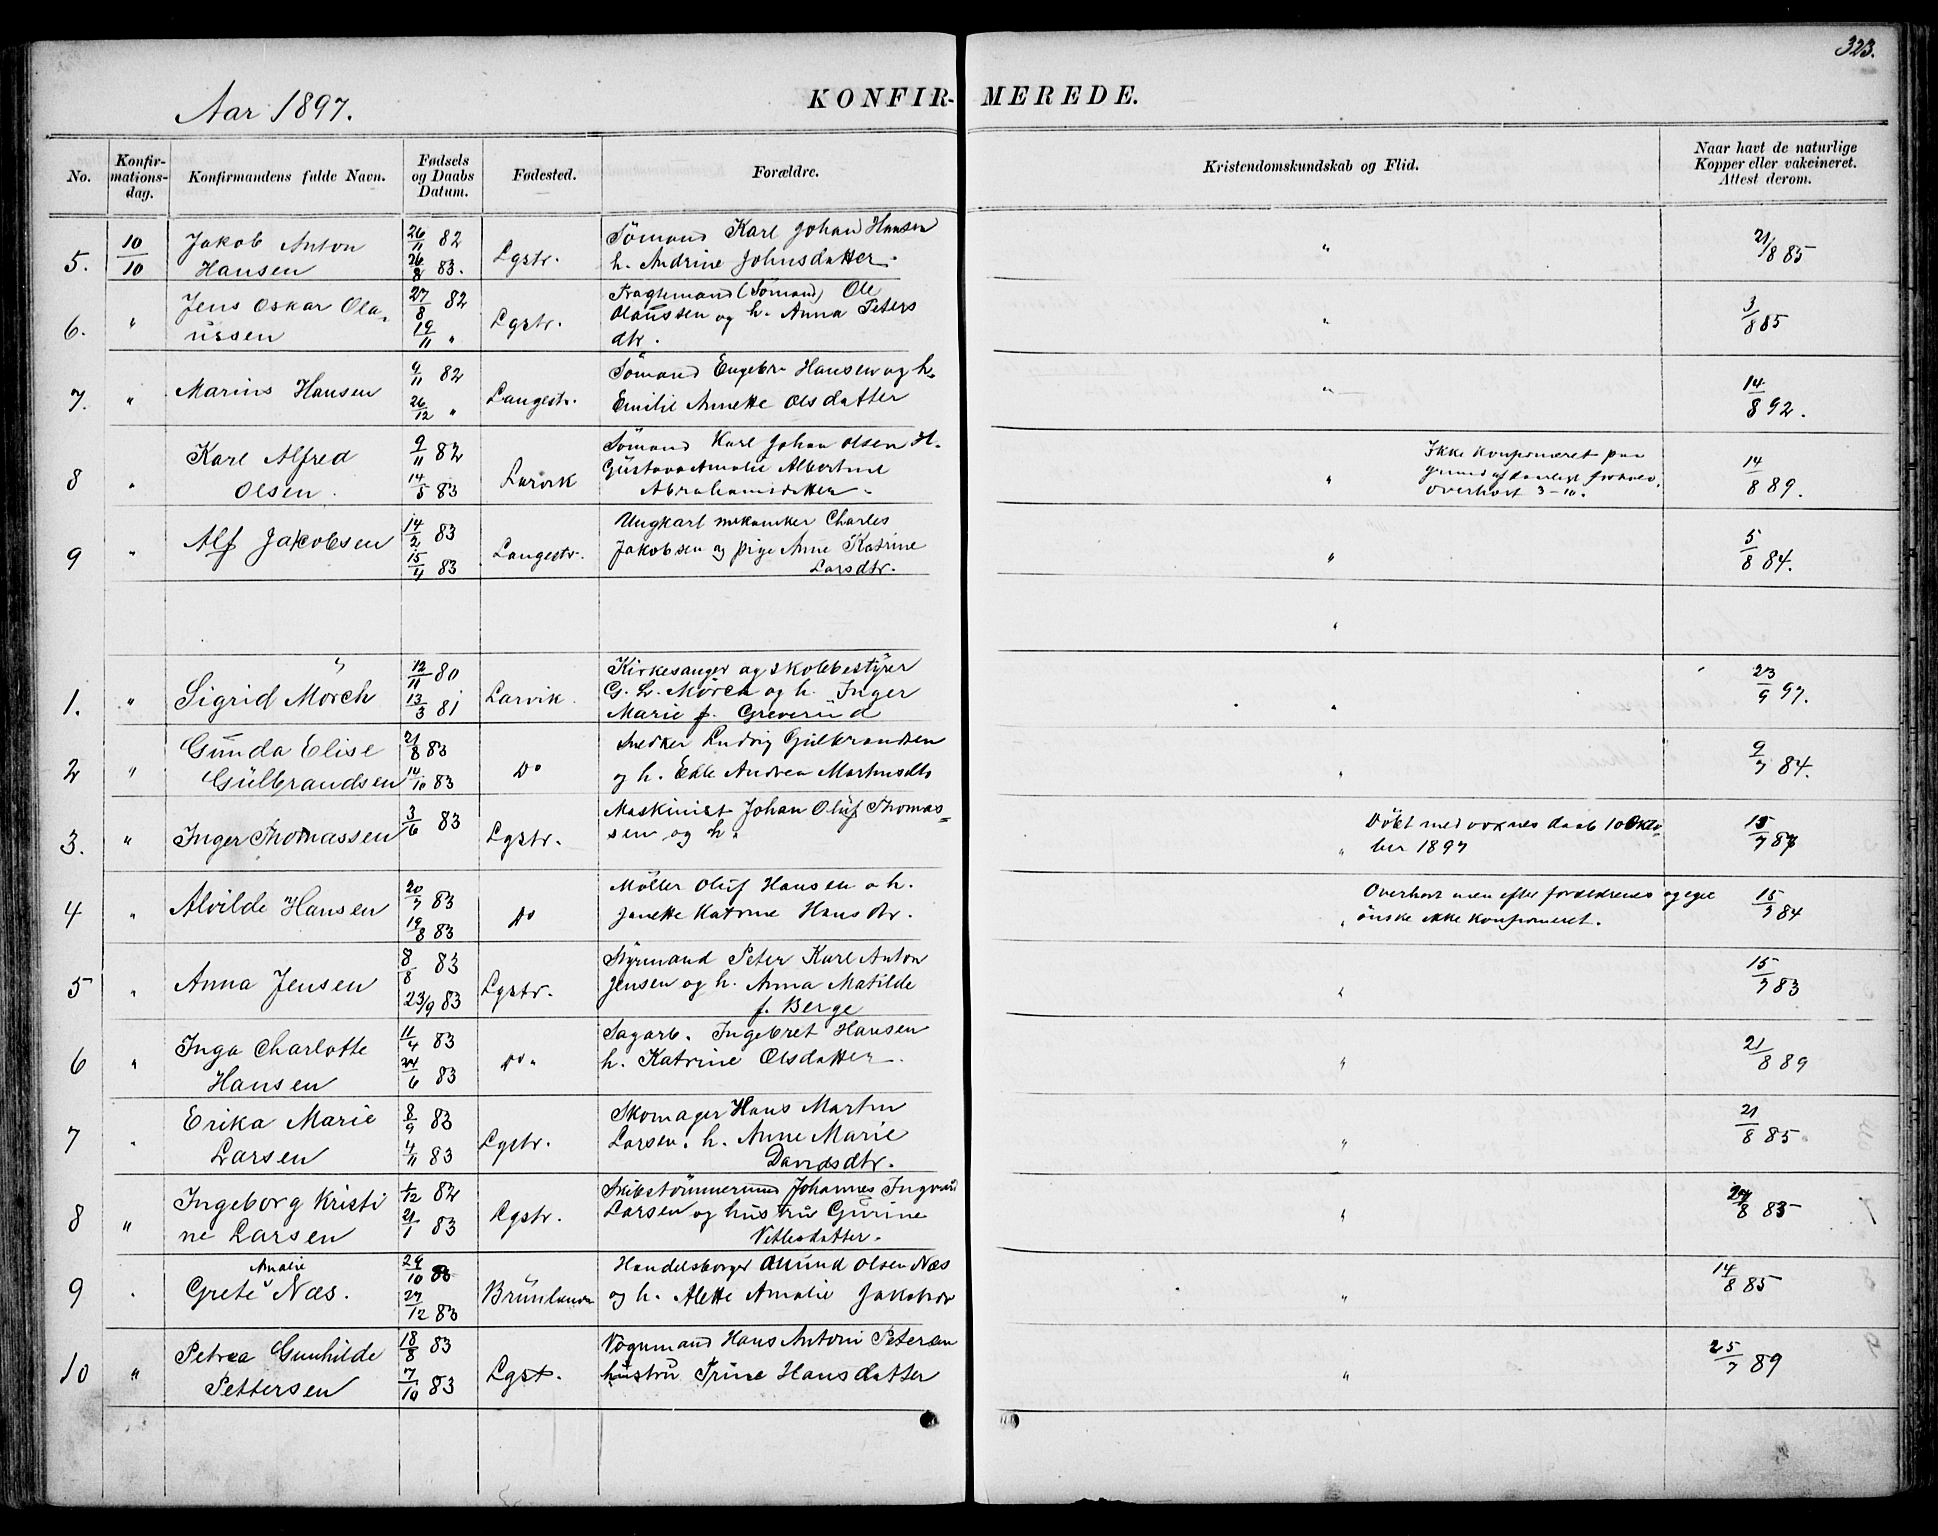 323.
Aar 1897.
KONFIR- MEREDE.
No.
Konfir-
mations-
dag.
Konfirmandens fulde Navn.
Fødsels
og Daabs
Datum.
Fødested.
Forældre.
Kristendomskundskab og Flid.
Naar havt de naturlige
Kopper eller vakcineret.
Attest derom.
5. 10/10 Jakob Anton
Hansen
26/11 82
26/8 83.
Lgstr.
Sömand Karl Johan Hansen
h. Andrine Johnsdatter.
"
21/8 85
6. " Jens Oskar Ola-
ussen
27/8 82
19/11 "
Lgstr.
Fragtemand (Sömand) Ole
Olaussen og h. Anna Peters
dtr.
"
3/8 85
7. " Marius Hansen
9/11 82
26/12 "
Langestr.
Sömand Engebr. Hansen og h.
Emilie Annette Olsdatter
"
14/8 92.
8 " Karl Alfred
Olsen.
9/11 82
14/5 83
Larvik
Sömand Karl Johan Olsen H.
Gustava Amalie Albertine
Abrahamsdatter.
" Ikke konfirmeret paa
grund af daarligt
overhört 3-10.
14/8 89.
9 " Alf Jakobsen
14/2 83
15/4 83
Langestr.
Ungkarl mekaniker Charles
Jakobsen og pige Anne Katrine
Larsdtr.
"
5/8 84.
"
1. " Sigrid Mörch
12/11 80
13/3 81
Larvik.
Kirkesanger og skolebestyrer
G. L. Mörch og h. Inger
Marie f. Greverud
"
23/9 97.
2 " Gunda Elise
Gulbrandsen
21/8 83
14/10 83
Do
Snedker Ludvig Gulbrandsen
og h. Edle Andrea Martinsdtr
"
9/7 84.
3. " Inger Thomassen
3/6 83
Lgstr.
Maskinist Johan Oluf Thomas=
sen og h.
" Döbt med voxnes daab 10 Okto-
ber 1897
15/7 87
4 " Alvilde Hansen
20/7 83
19/8 83
Do
Möller Oluf Hansen o h.
Janette Katrine Hansdtr.
" Overhört men efter forældrenes og eget
önske ikke konfirmeret.
15/7 84
5 " Anna Jensen
8/8 83
23/9 83
Lgstr.
Styrmand Peter Karl Anton
Jensen og h. Anna Matilde
f. Berge
"
15/7 83
6 " Inga Charlotte
Hansen
11/4 83
24/6 83
Do "
Sagarb. Ingebret Hansen
h. Katrine Olsdatter.
"
21/8 89
7 " Erika Marie
Larsen
8/9 83
4/11 83
Lgstr.
Skomager Hans Martin
Larsen. h. Anne Marie
Davidsdtr.
"
21/8 85.
8 " Ingeborg Kristi
ne Larsen
1/12 82
21/1 83
Lgstr.
Skibstömmermand Johannes Ingvald
Larsen og hustru Gurine
Vetlesdatter.
"
24/8 85
9 " Grete Amalie Næs.
29/10 83
27/12 83
Brunlanes
Handelsborger Amund Olsen Næs
og h. Alette Amalie Jakobsdr
"
14/8 85
10 " Petrea Gunhilde
Pettersen
18/8 83
7/10 83
Lgst.
Vognmand Hans Anton Petersen
hustru Trine Hansdatter
"
25/7 89